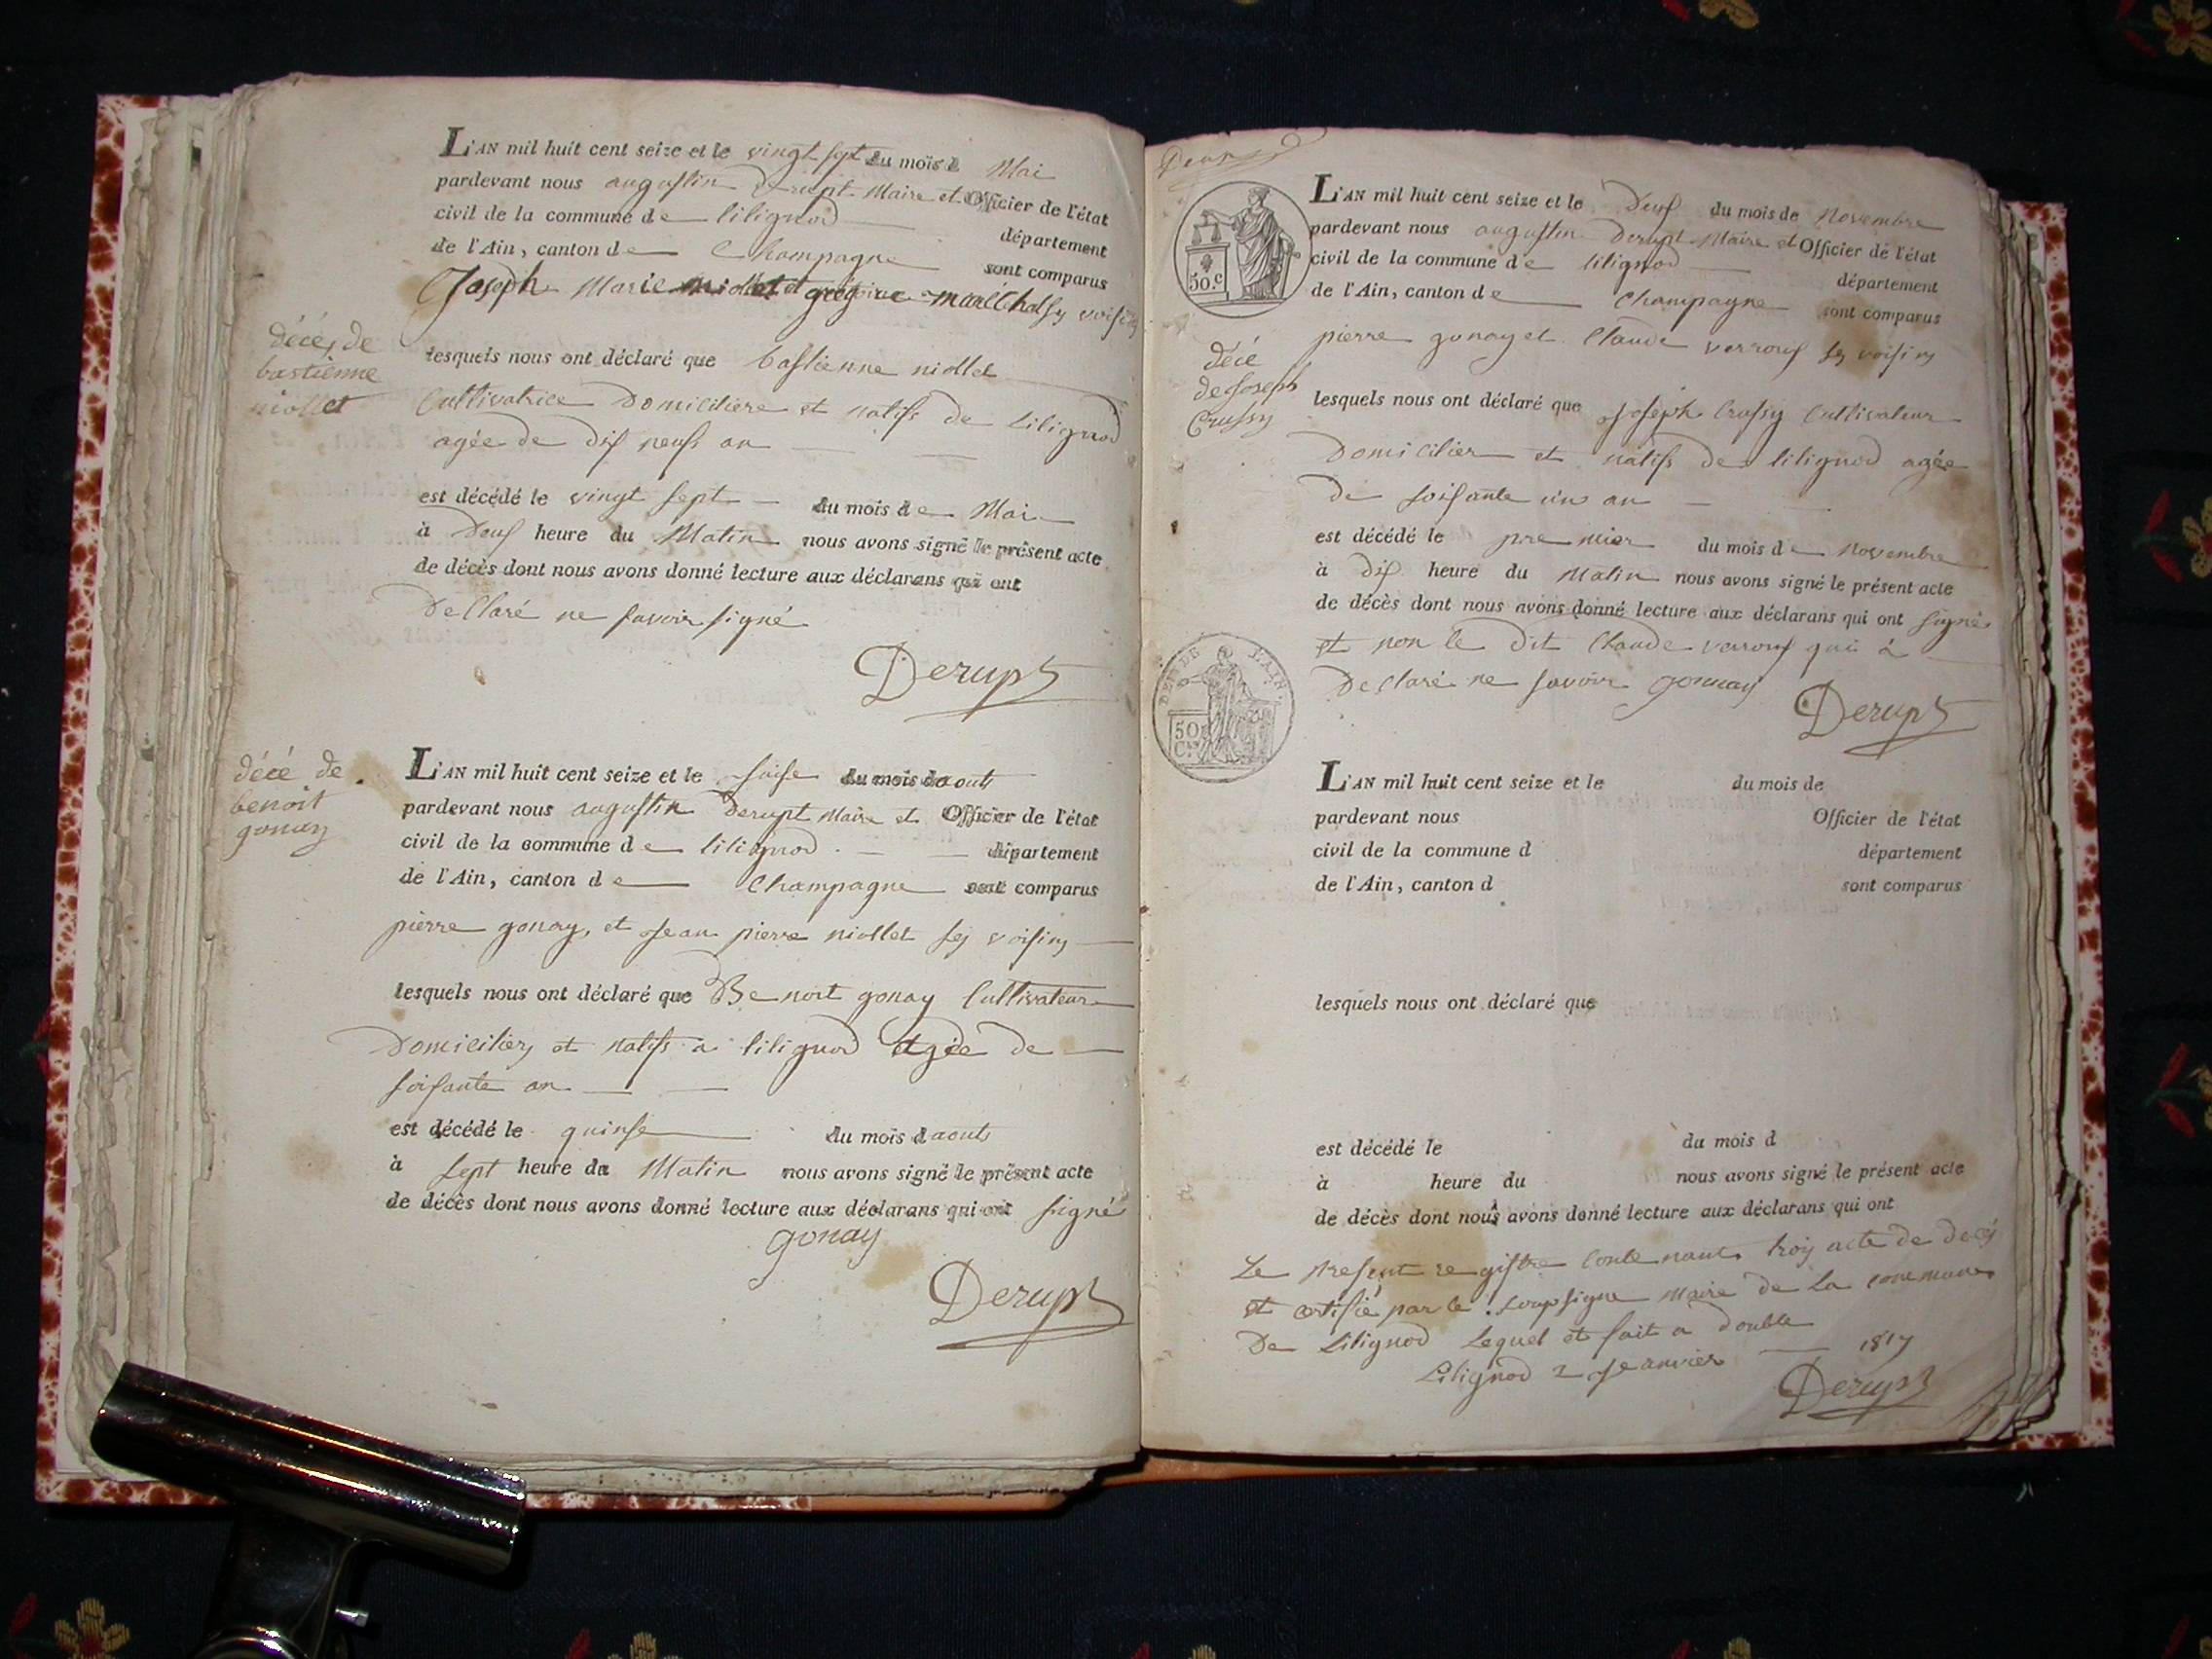 L'AN mil huit cent seize et le vingt sept du mois d Mai
pardevant nous augustin Derupt Maire et Officier de l'état
civil de la commune de lilignod département
de l'Ain, canton de Champagne sont comparus
Joseph Marie niollet et gregoire marechal ses voisins
décés de
bastienne
niollet
lesquels nous ont déclaré que bastienne niollet
Cultivatrice Domiciliere et natifs de Lilignod
agée de dix neufs an
est décédé le vingt sept du mois de Mai
à Deux heure du Matin nous avons signé le présent acte
de décès dont nous avons donné lecture aux déclarans qui ont
Declaré ne savoir signé
Derupt
décé de
benoit
gonay
L'AN mil huit cent seize et le saise du mois daouts
pardevant nous augustin Derupt Maire et Officier de l'état
civil de la commune de lilignod département
de l'Ain, canton de Champagne sont comparus
pierre gonay, et Jean pierre niollet ses voisins
lesquels nous ont déclaré que Benoit gonay Cultivateur
Domiciliers et natifs a lilignod Agée de
soisante an
est décédé le quinse du mois daouts
à sept heure du Matin nous avons signé le présent acte
de décès dont nous avons donné lecture aux déclarans qui ont signé
gonay
Derupt
50.C
L'AN mil huit cent seize et le Deux du mois de Novembre
pardevant nous augustin Derupt Maire et Officier de l'état
civil de la commune de lilignod département
de l'Ain, canton de Champagne sont comparus
pierre gonay et Claude verroux ses voisins
décé
de Joseph
Crussy
lesquels nous ont déclaré que Joseph Crussy Cultivateur
Domicilier et natifs de lilignod agée
de soisante un an
est décédé le premier du mois de Novembre
à dix heure du Matin nous avons signé le présent acte
de décès dont nous avons donné lecture aux déclarans qui ont signé
et non le dit Claude verroux qui à
Declaré ne savoir gonnay
Derupt
DEP. DE L'AIN.
50
C.
L'AN mil huit cent seize et le du mois de
pardevant nous Officier de l'état
civil de la commune d département
de l'Ain, canton d sont comparus
lesquels nous ont déclaré que
est décédé le du mois d
à heure du nous avons signé le présent acte
de décès dont nous avons donné lecture aux déclarans qui ont
Le present registre contenant trois acte de decés
et certifié par le soupsigne Maire de La commune
De Lilignod Lequel et fait a double
Lilignod 2 Jeanvier 1817
Derupt